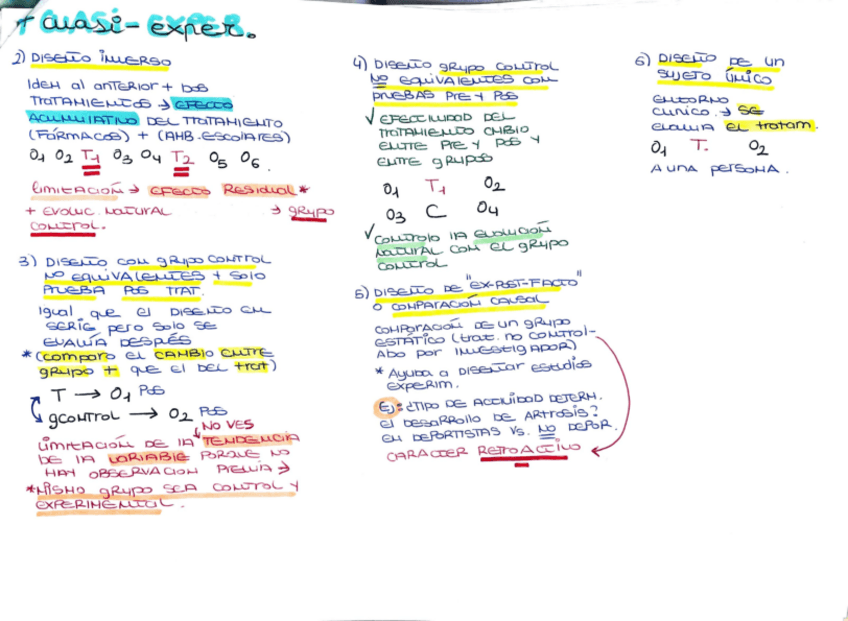 + CUASI-EXPER.
2) DISEÑO INVERSO
IDEM al anTERIOR + DOS
TRATAMIENTOS → EFECTO
ACUMULATIVO DEL TRATAMIENTO
(FÁRMACOS) + (AMB. ESCOLARES)
O1 O2 T1 O3 O4 T2 O5 O6.
LIMITACIÓN → EFECTO RESIDUAL*
+ EVOLUC. NATURAL → GRUPO
CONTROL.
3) DISEÑO CON GRUPO CONTROL
NO EQUIVALENTES + SOLO
PRUEBA POS TRAT.
Igual que el DISEÑO EN
SERIE pero SOLO SE
EVALÚA DESPÚES
*(comparo EL CAMBIO ENTRE
grupo + que el DEL trat)
T → O1 POS
gCONTROL → O2 POS
NO VES
LIMITACIÓN DE LA TENDENCIA
DE LA VARIABLE PORQUE NO
HAY OBSERVACION PREVIA →
*MISMO grupo SEA CONTROL Y
EXPERIMENTAL.
4) DISEÑO GRUPO CONTROL
NO EQUIVALENTES CON
PRUEBAS PRE Y POS
✓ EFECTIVIDAD DEL
TRATAMIENTO CMBIO
ENTRE PRE Y POS Y
ENTRE GRUPOS
O1 T1 O2
O3 C O4
✓ CONTROLO LA EVOLUCIÓN
NATURAL CON EL GRUPO
CONTROL
5) DISEÑO DE "EX-POST-FACTO"
O COMPARACIÓN CAUSAL
COMPORACIÓN DE UN GRUPO
ESTÁTICO (trat. NO CONTROL-
ADO POR INVESTIGADOR)
* Ayuda a DISEÑAR ESTUDIOS
EXPERIM.
Ej: ¿TIPO DE ACTIVIDAD DETERM.
EL DESARROLLO DE ARTROSIS?
EN DEPORTISTAS VS. NO DEPOR.
CARACTER RETROACTIVO
6) DISEÑO DE UN
SUJETO ÚNICO
ENTORNO
CLINICO → SE
EVALUA EL tratam.
O1 T. O2
A UNA PERSONA.